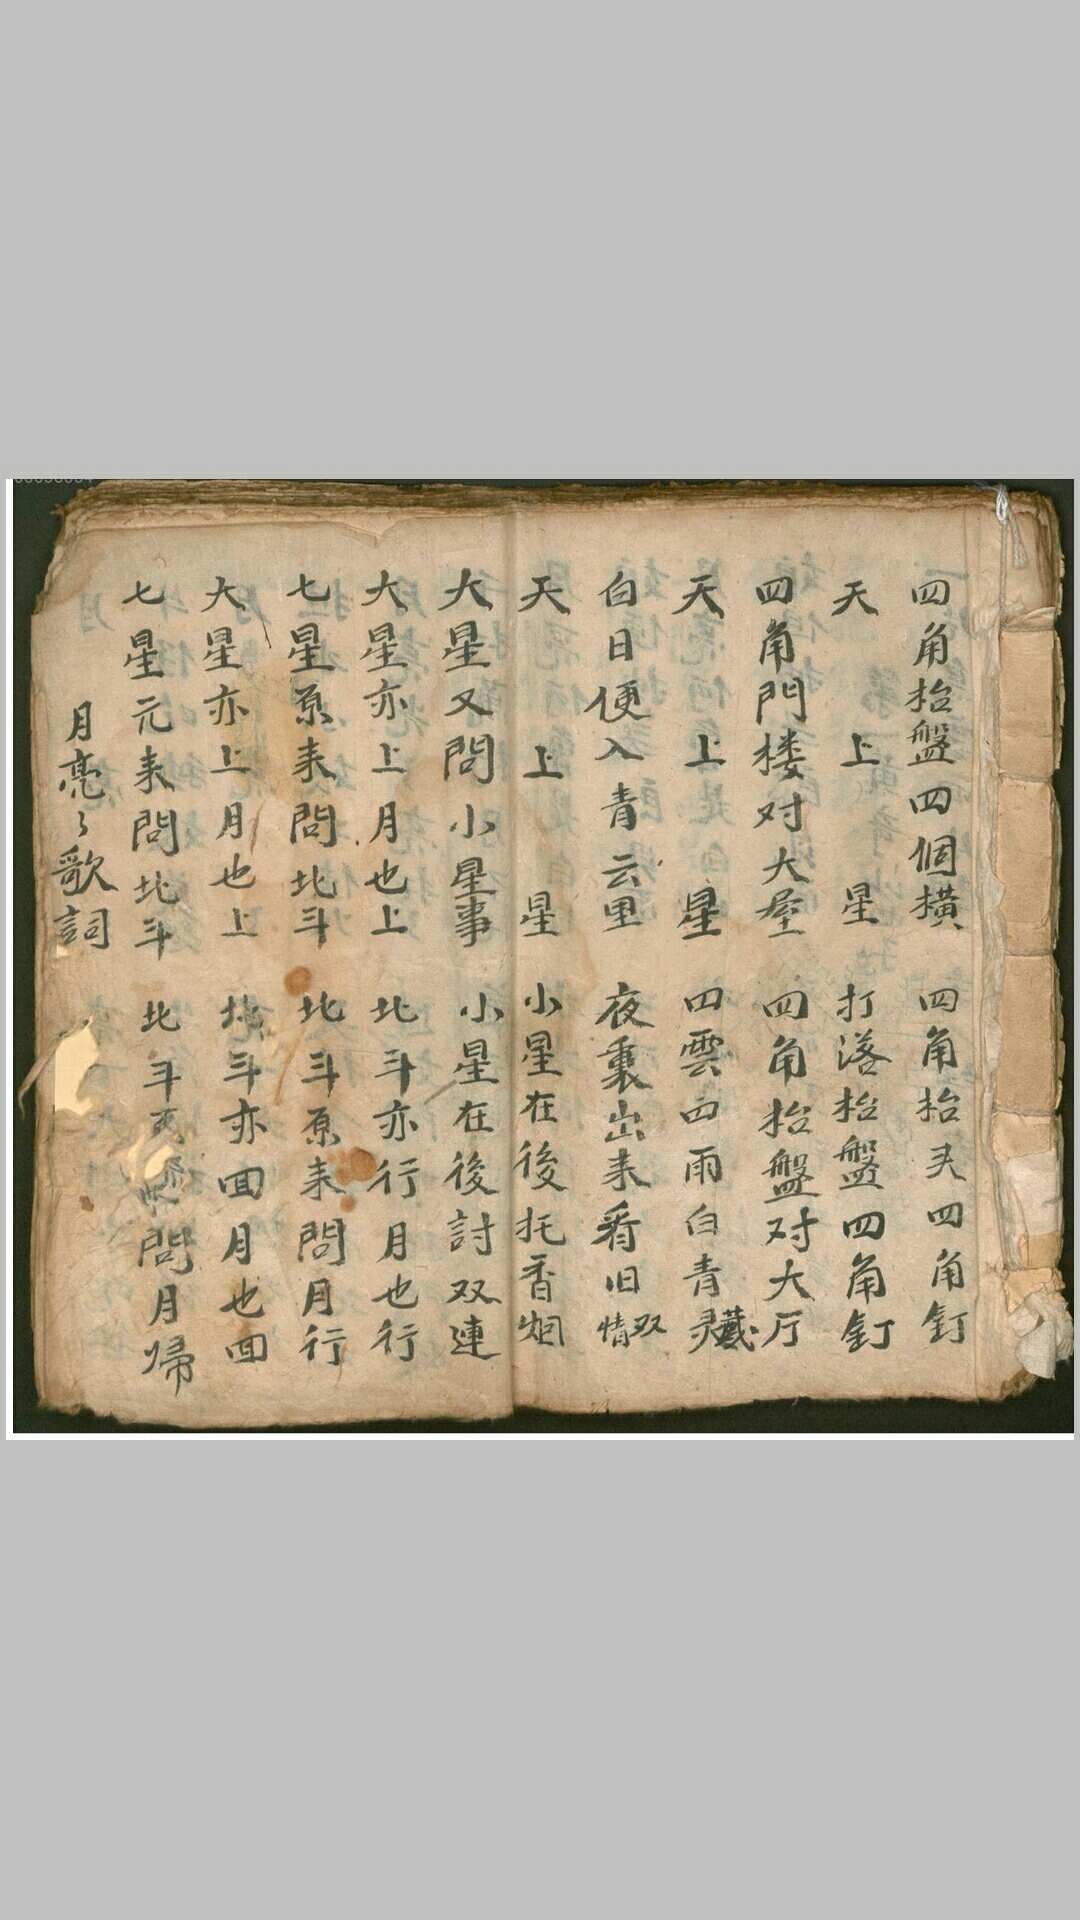 四角抬盤四個横 四角抬夹四角釘
天上星 打落枱盤四角釘
四角門楼对大屋 四角枱盤对大厅
天上星 四雲四雨白青灵藏
白日便入青云里 夜裏出来看旧情双
天上星 小星在後托香烟
大星又問小星事 小星在後討双連
大星亦上月也上 北斗亦行月也行
七星原来問北斗 北斗原来問月行
大星亦上月也上 北斗亦囬月也囬
七星元来問北斗 北斗 問月歸
月亮〻歌詞